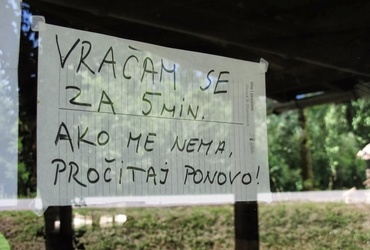 VRAČAM SE
ZA 5 MIN.
AKO ME NEMA,
PROČITAJ PONOVO!